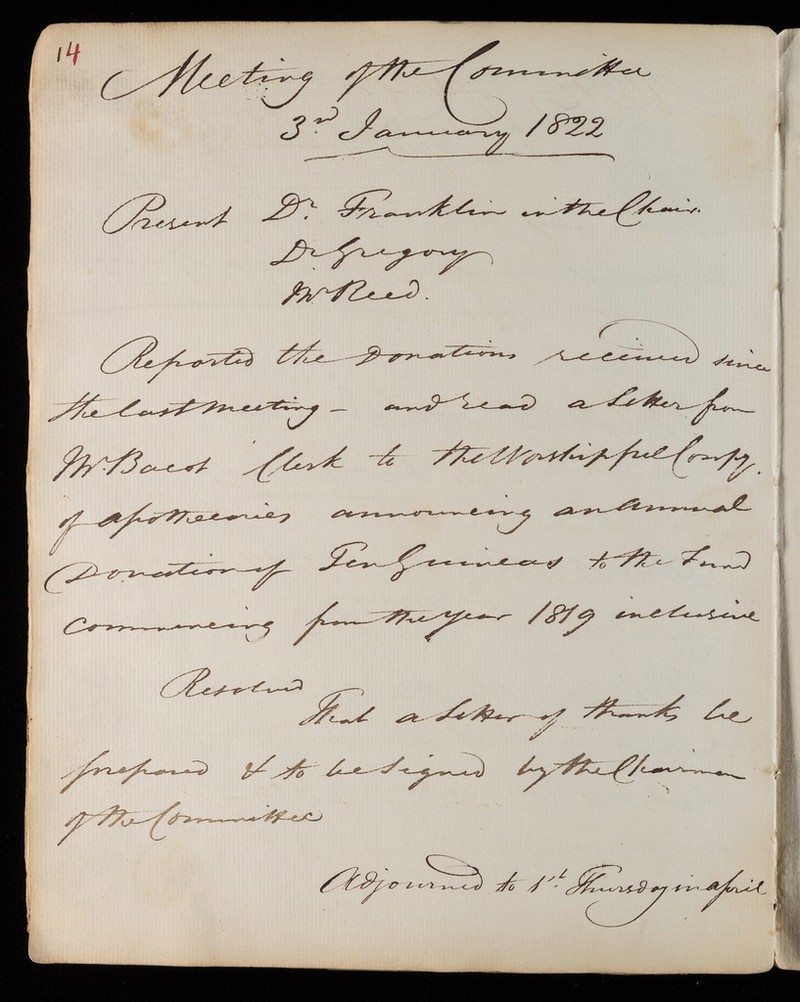 14
Meeting of the Committee
3rd January 1822
Present Dr. Franklin in the Chair.
Dr Gregory
Mr Reed.
Reported the Donations received since
the last Meeting - and read a Letter from
Mr. Bacot Clerk to the Worshipful Compy.
of apothecaries announcing an Annual
Donation of Ten Guineas to the Fund
commencing from the year 1819 inclusive
Resolved
That a Letter of thanks be
prepared & to be signed by the Chairman
of the Committee
Adjourned to 1st. Thursday in april